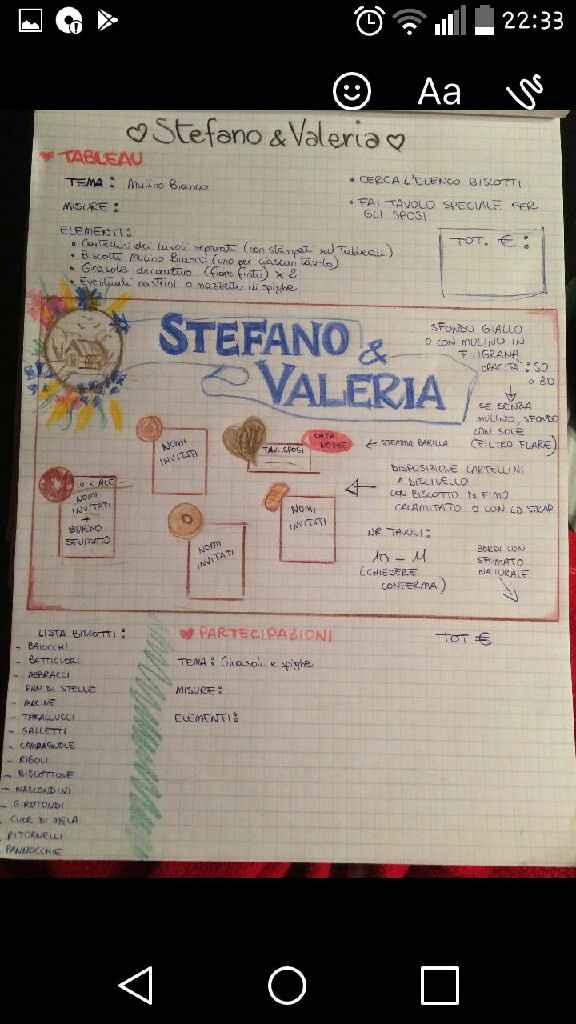 22:33
Aa
Stefano & Valeria
TABLEAU
TEMA: Mulino Bianco
MISURE:
ELEMENTI:
• Cartellini dei tavoli separati (non stampati sul Tableau)
• Biscotti Mulino Bianco (uno per ciascun tavolo)
• Girasole decorativo (fiore finto) x 2
• Eventuali nastrini o mazzetti di spighe
• CERCA L'ELENCO BISCOTTI
• FAI TAVOLO SPECIALE PER
GLI SPOSI
TOT. €:
STEFANO
&
VALERIA
SFONDO GIALLO
O CON MULINO IN
FILIGRANA
OPACITÀ: 50
o 30
SE SENZA
MULINO, SFONDO
CON SOLE
(FILTRO FLARE)
NOMI
INVITATI
TAV. SPOSI
DATA
NOZZE
← STEMMA BARILLA
NOMI
INVITATI
→
BORDO
SFUMATO
NOMI
INVITATI
NOMI
INVITATI
DISPOSIZIONE CARTELLINI
A BILIVELLO
CON BISCOTTO IN FIMO
CALAMITATO O CON LO STRAP
NR TAVOLI:
10 - 11
(CHIEDERE
CONFERMA)
BORDI CON
SFUMATO
NATURALE
LISTA BISCOTTI:
- BAIOCCHI
- BATTICUORI
- ABBRACCI
PAN DI STELLE
- MACINE
- TARALLUCCI
- GALLETTI
- CAMPAGNOLE
- RIGOLI
- BISCOTTONE
- NASCONDINI
- GIROTONDI
- CUOR DI MELA
RITORNELLI
PANNOCCHIE
PARTECIPAZIONI
TEMA: Girasoli e spighe
MISURE:
ELEMENTI:
TOT €